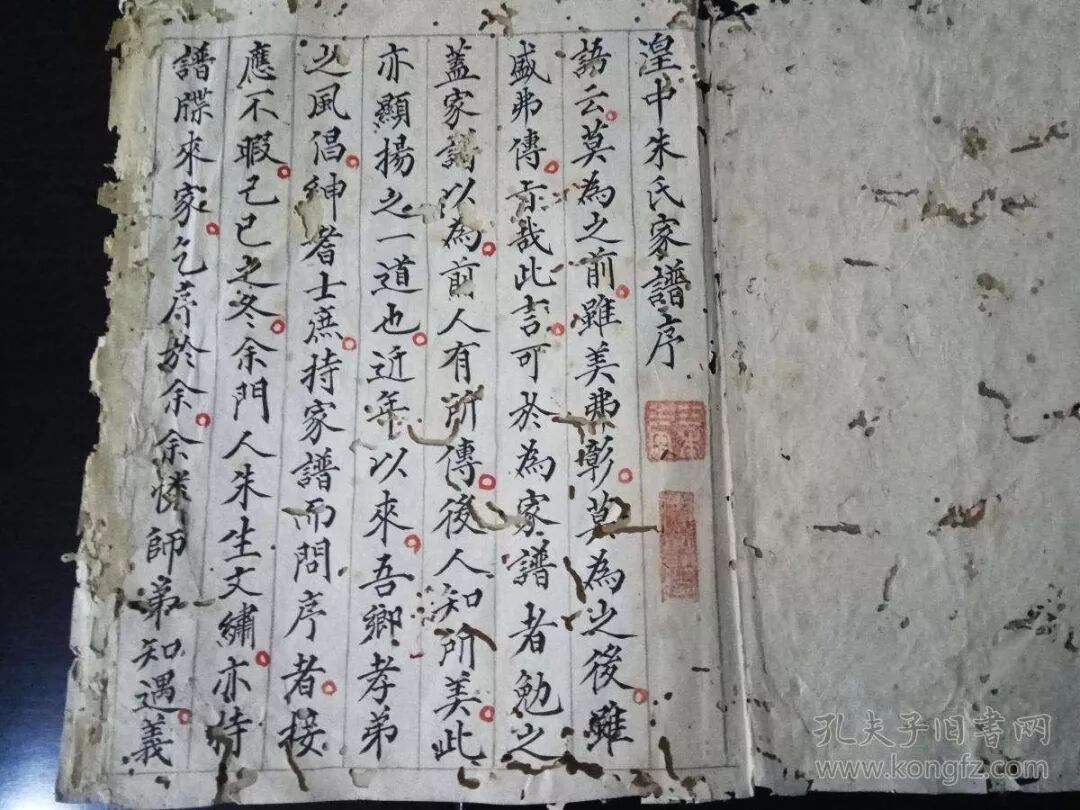 湟中朱氏家譜序
語云莫為之前雖美弗彰莫為之後雖
盛弗傳哉此言可於為家譜者勉之
蓋家譜以為前人有所傳後人知所美此
亦顯揚之一道也近年以來吾鄉孝弟
之風倡紳耆士庶持家譜而問序者接
應不暇己巳之冬余門人朱生文繡亦持
譜牒來家乞序於余余憐師弟知遇義
孔夫子旧书网
www.kongfz.com